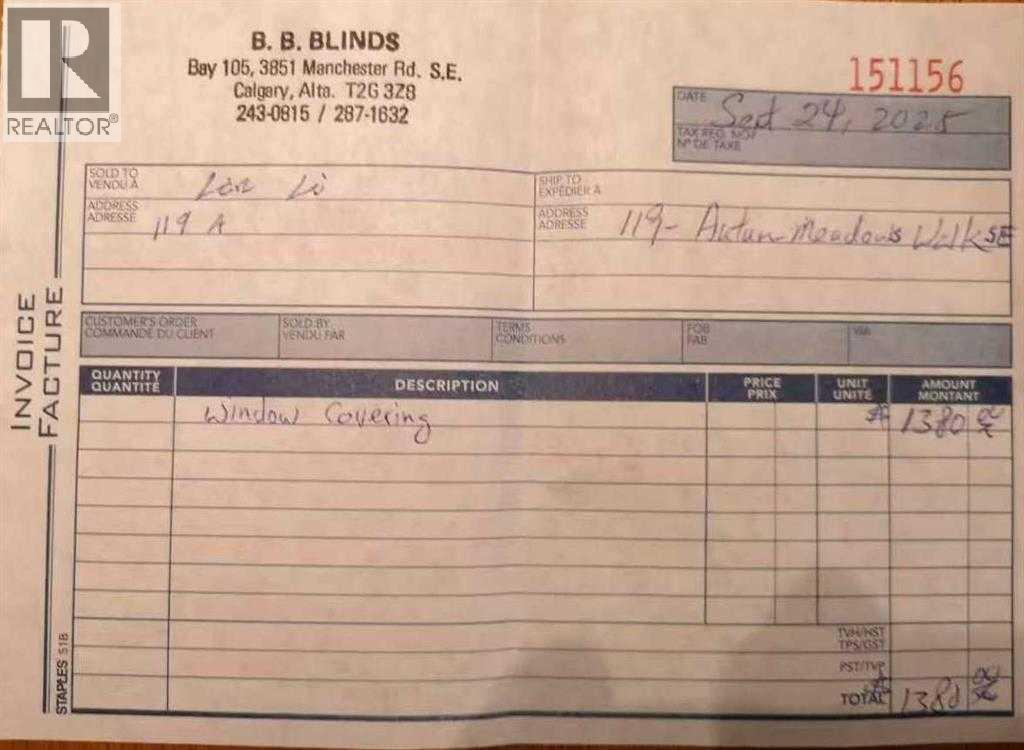 REALTOR®
B. B. BLINDS
Bay 105, 3851 Manchester Rd. S.E.
Calgary, Alta. T2G 3Z8
243-0815 / 287-1632
151156
DATE Sept 24, 2025
TAX REG. NO.
Nº DE TAXE
SOLD TO
VENDU À
Li
SHIP TO
EXPÉDIER À
ADDRESS
ADRESSE
119 A
ADDRESS
ADRESSE
119- Autum Meadows Walk SE
INVOICE
FACTURE
CUSTOMER'S ORDER
COMMANDE DU CLIENT
SOLD BY
VENDU PAR
TERMS
CONDITIONS
FOB
FAB
VIA
QUANTITY
QUANTITÉ
DESCRIPTION
PRICE
PRIX
UNIT
UNITÉ
AMOUNT
MONTANT
Window Covering 1380 00
TVH/HST
TPS/GST
PST/TVP
TOTAL 1380 00
STAPLES 51B